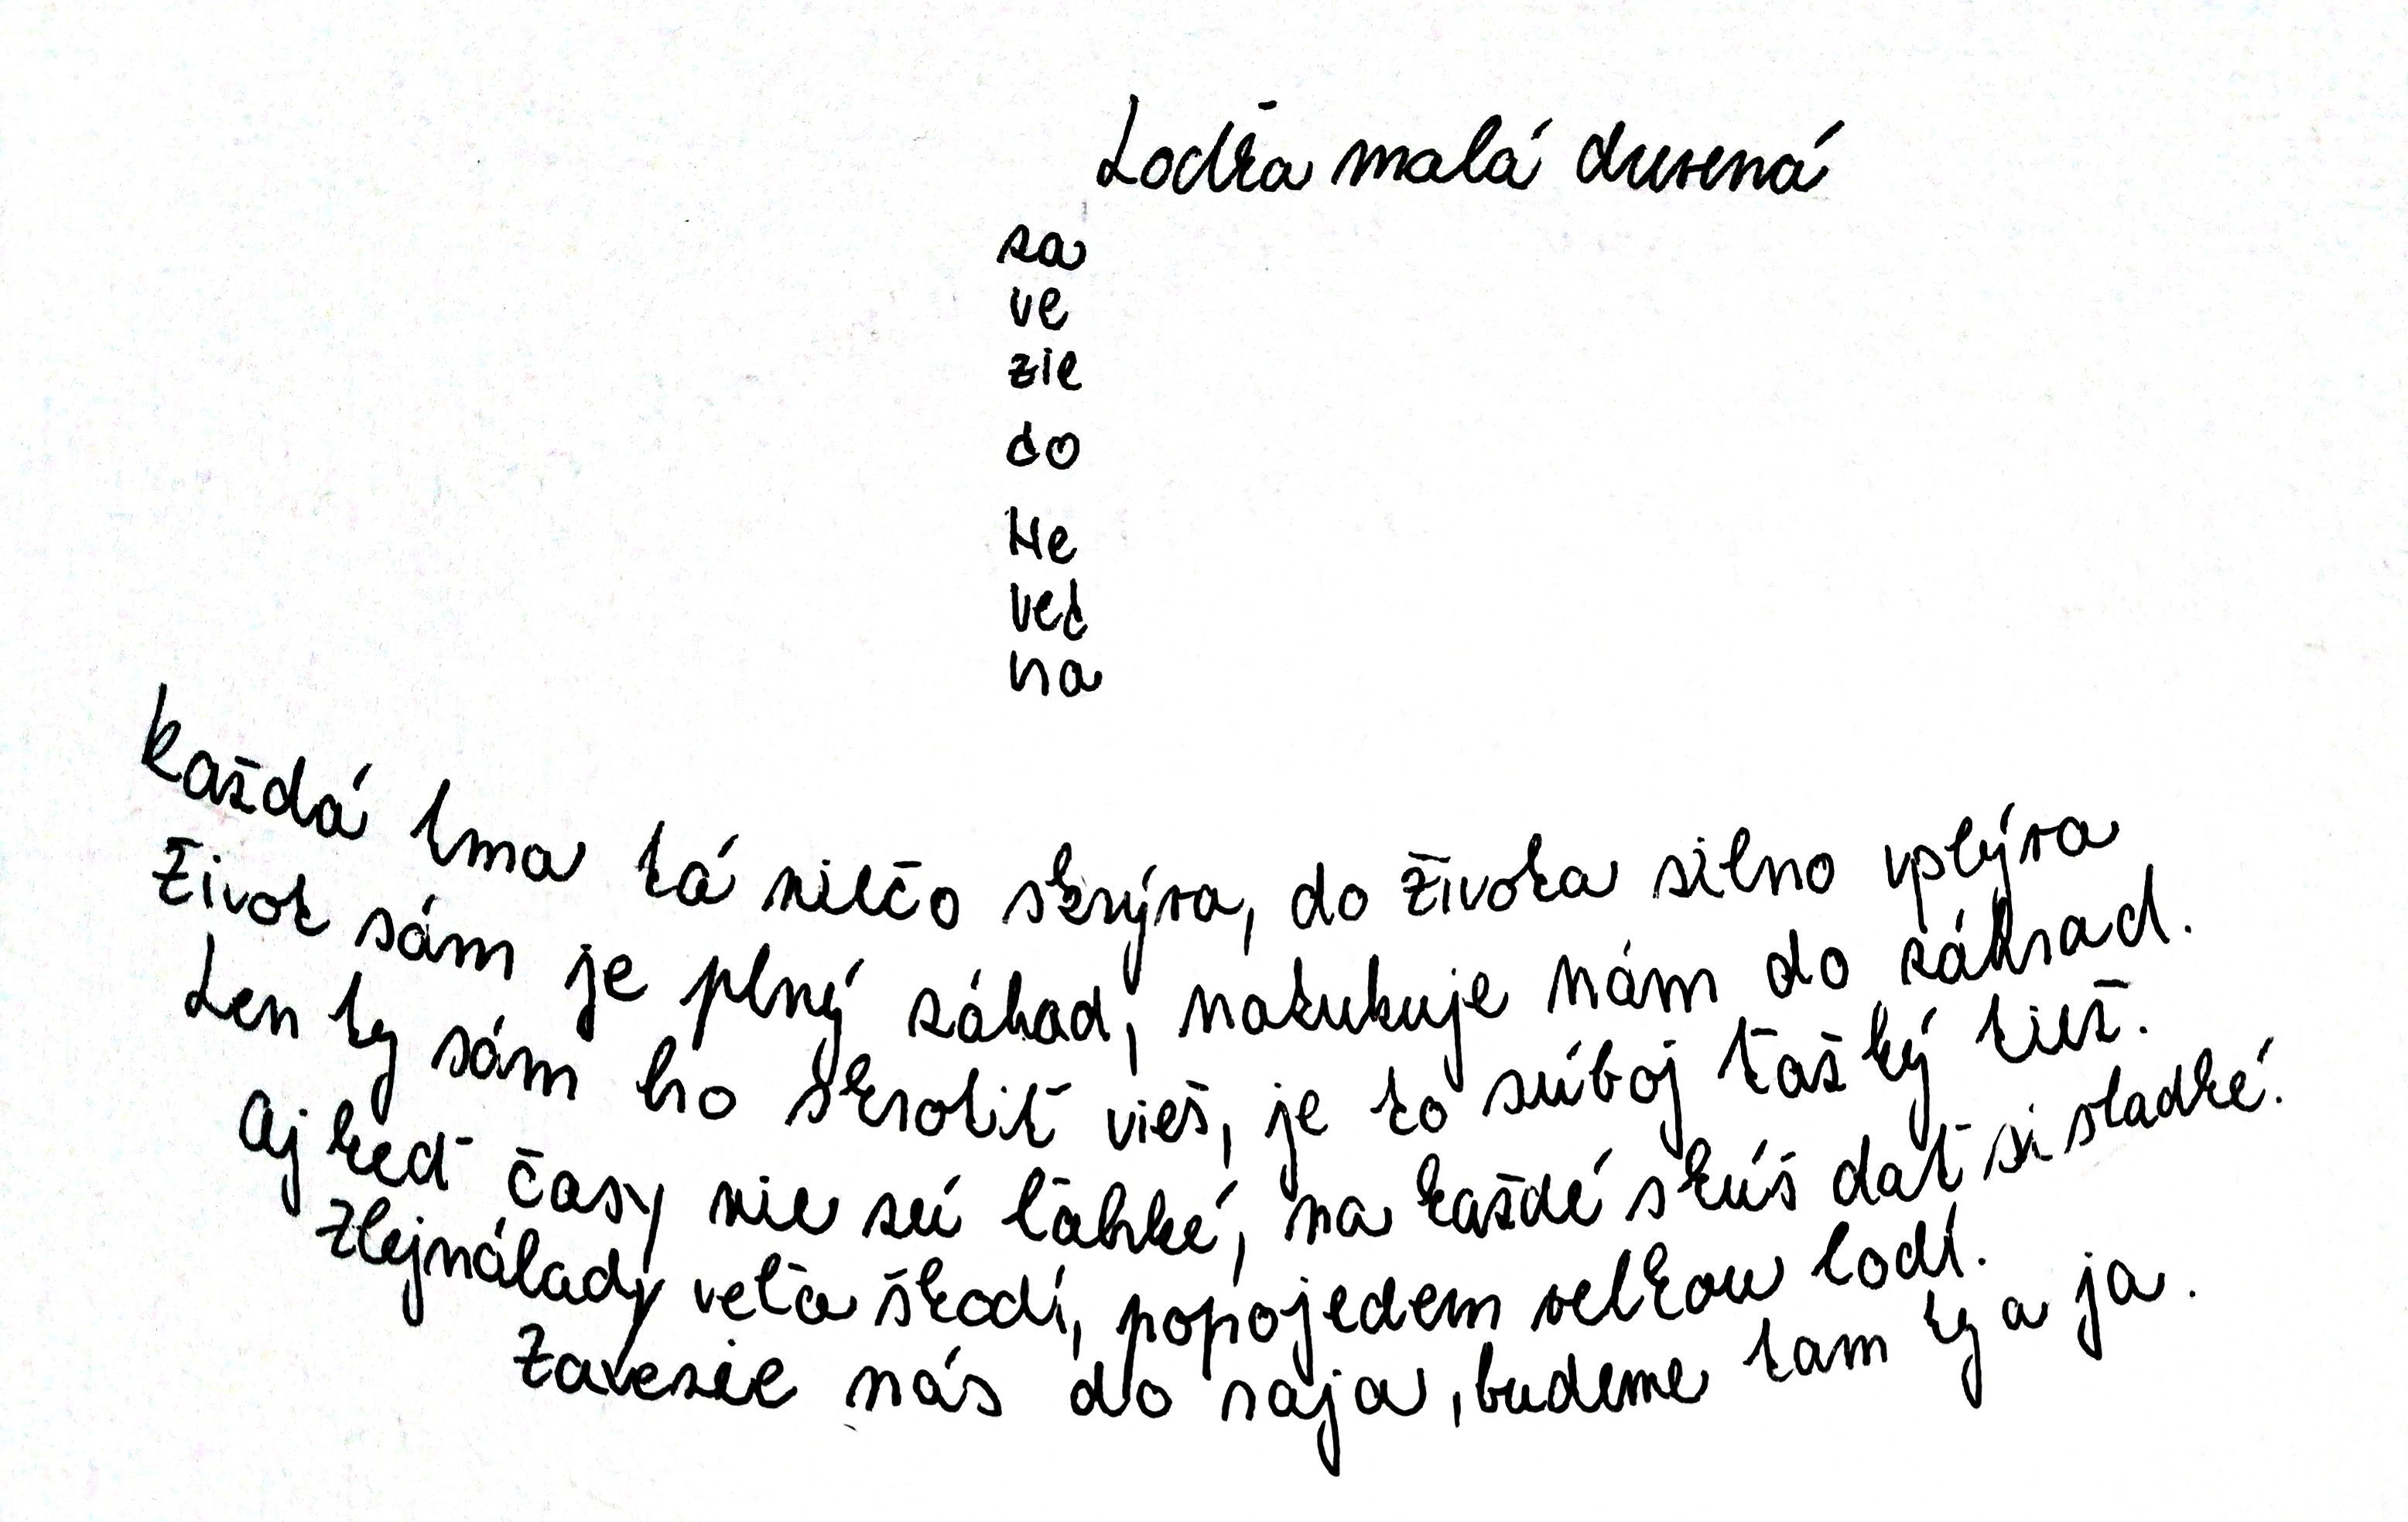 Loďka malá drevená
za
ve
zie
do
Ne
ved
na
každá tma tá niečo skrýva, do života silno vplýva
Život sám je plný záhad, nakukuje nám do záhrad.
Len ty sám ho skrotiť vieš, je to súboj ťažký tiež.
Aj keď časy nie sú ľahké, na každé skús dať si sladké.
Zlejnálady veľa škodí, popojedem velkou lodí.
Zavezie nás do raja, budeme tam ty a ja.